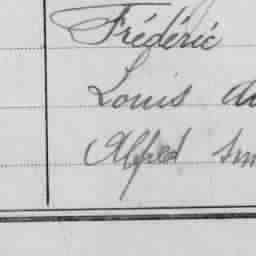 Frédéric
Louis
Alfred